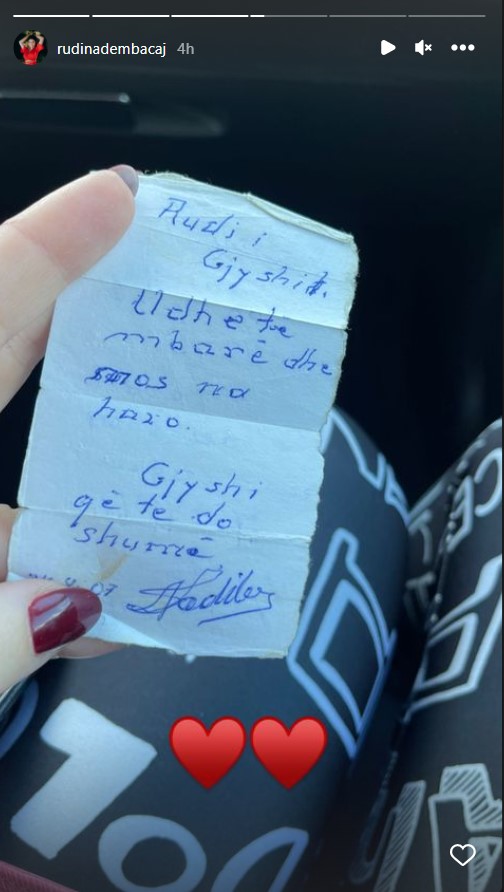 rudinadembacaj 4h
Rudi i
Gjyshit.
Udhe të
mbarë dhe
mos na
harro.
Gjyshi
që te do
shumë
4.07
100